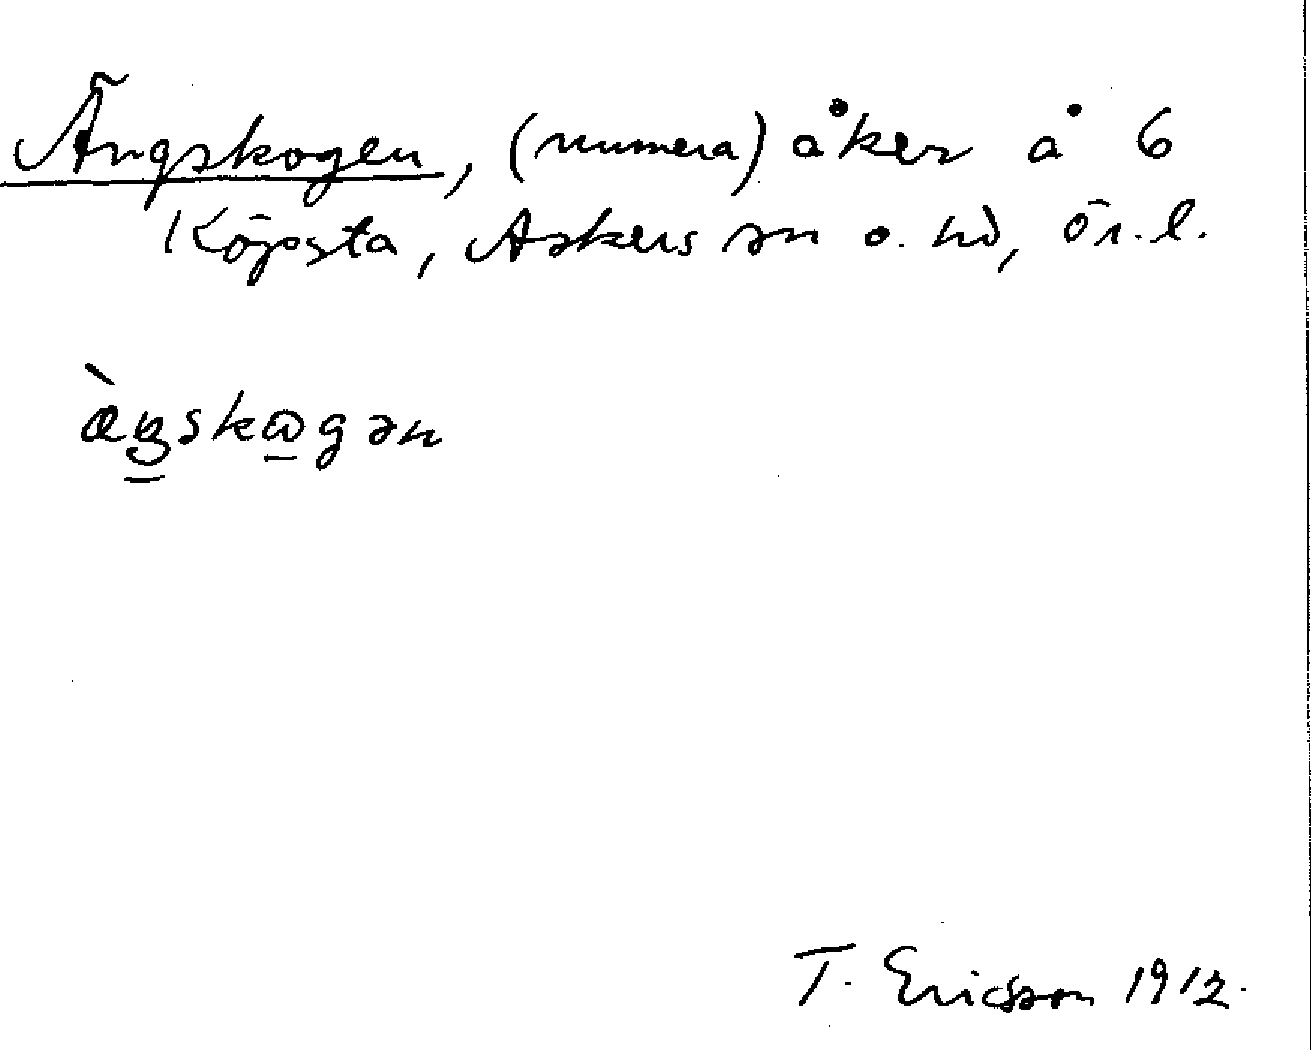 Ängskogen, (numera) åker å 6
Köpsta, Askers sn o. hd, Ör. l.
æ̀ŋskωgən
T. Ericsson 1912.